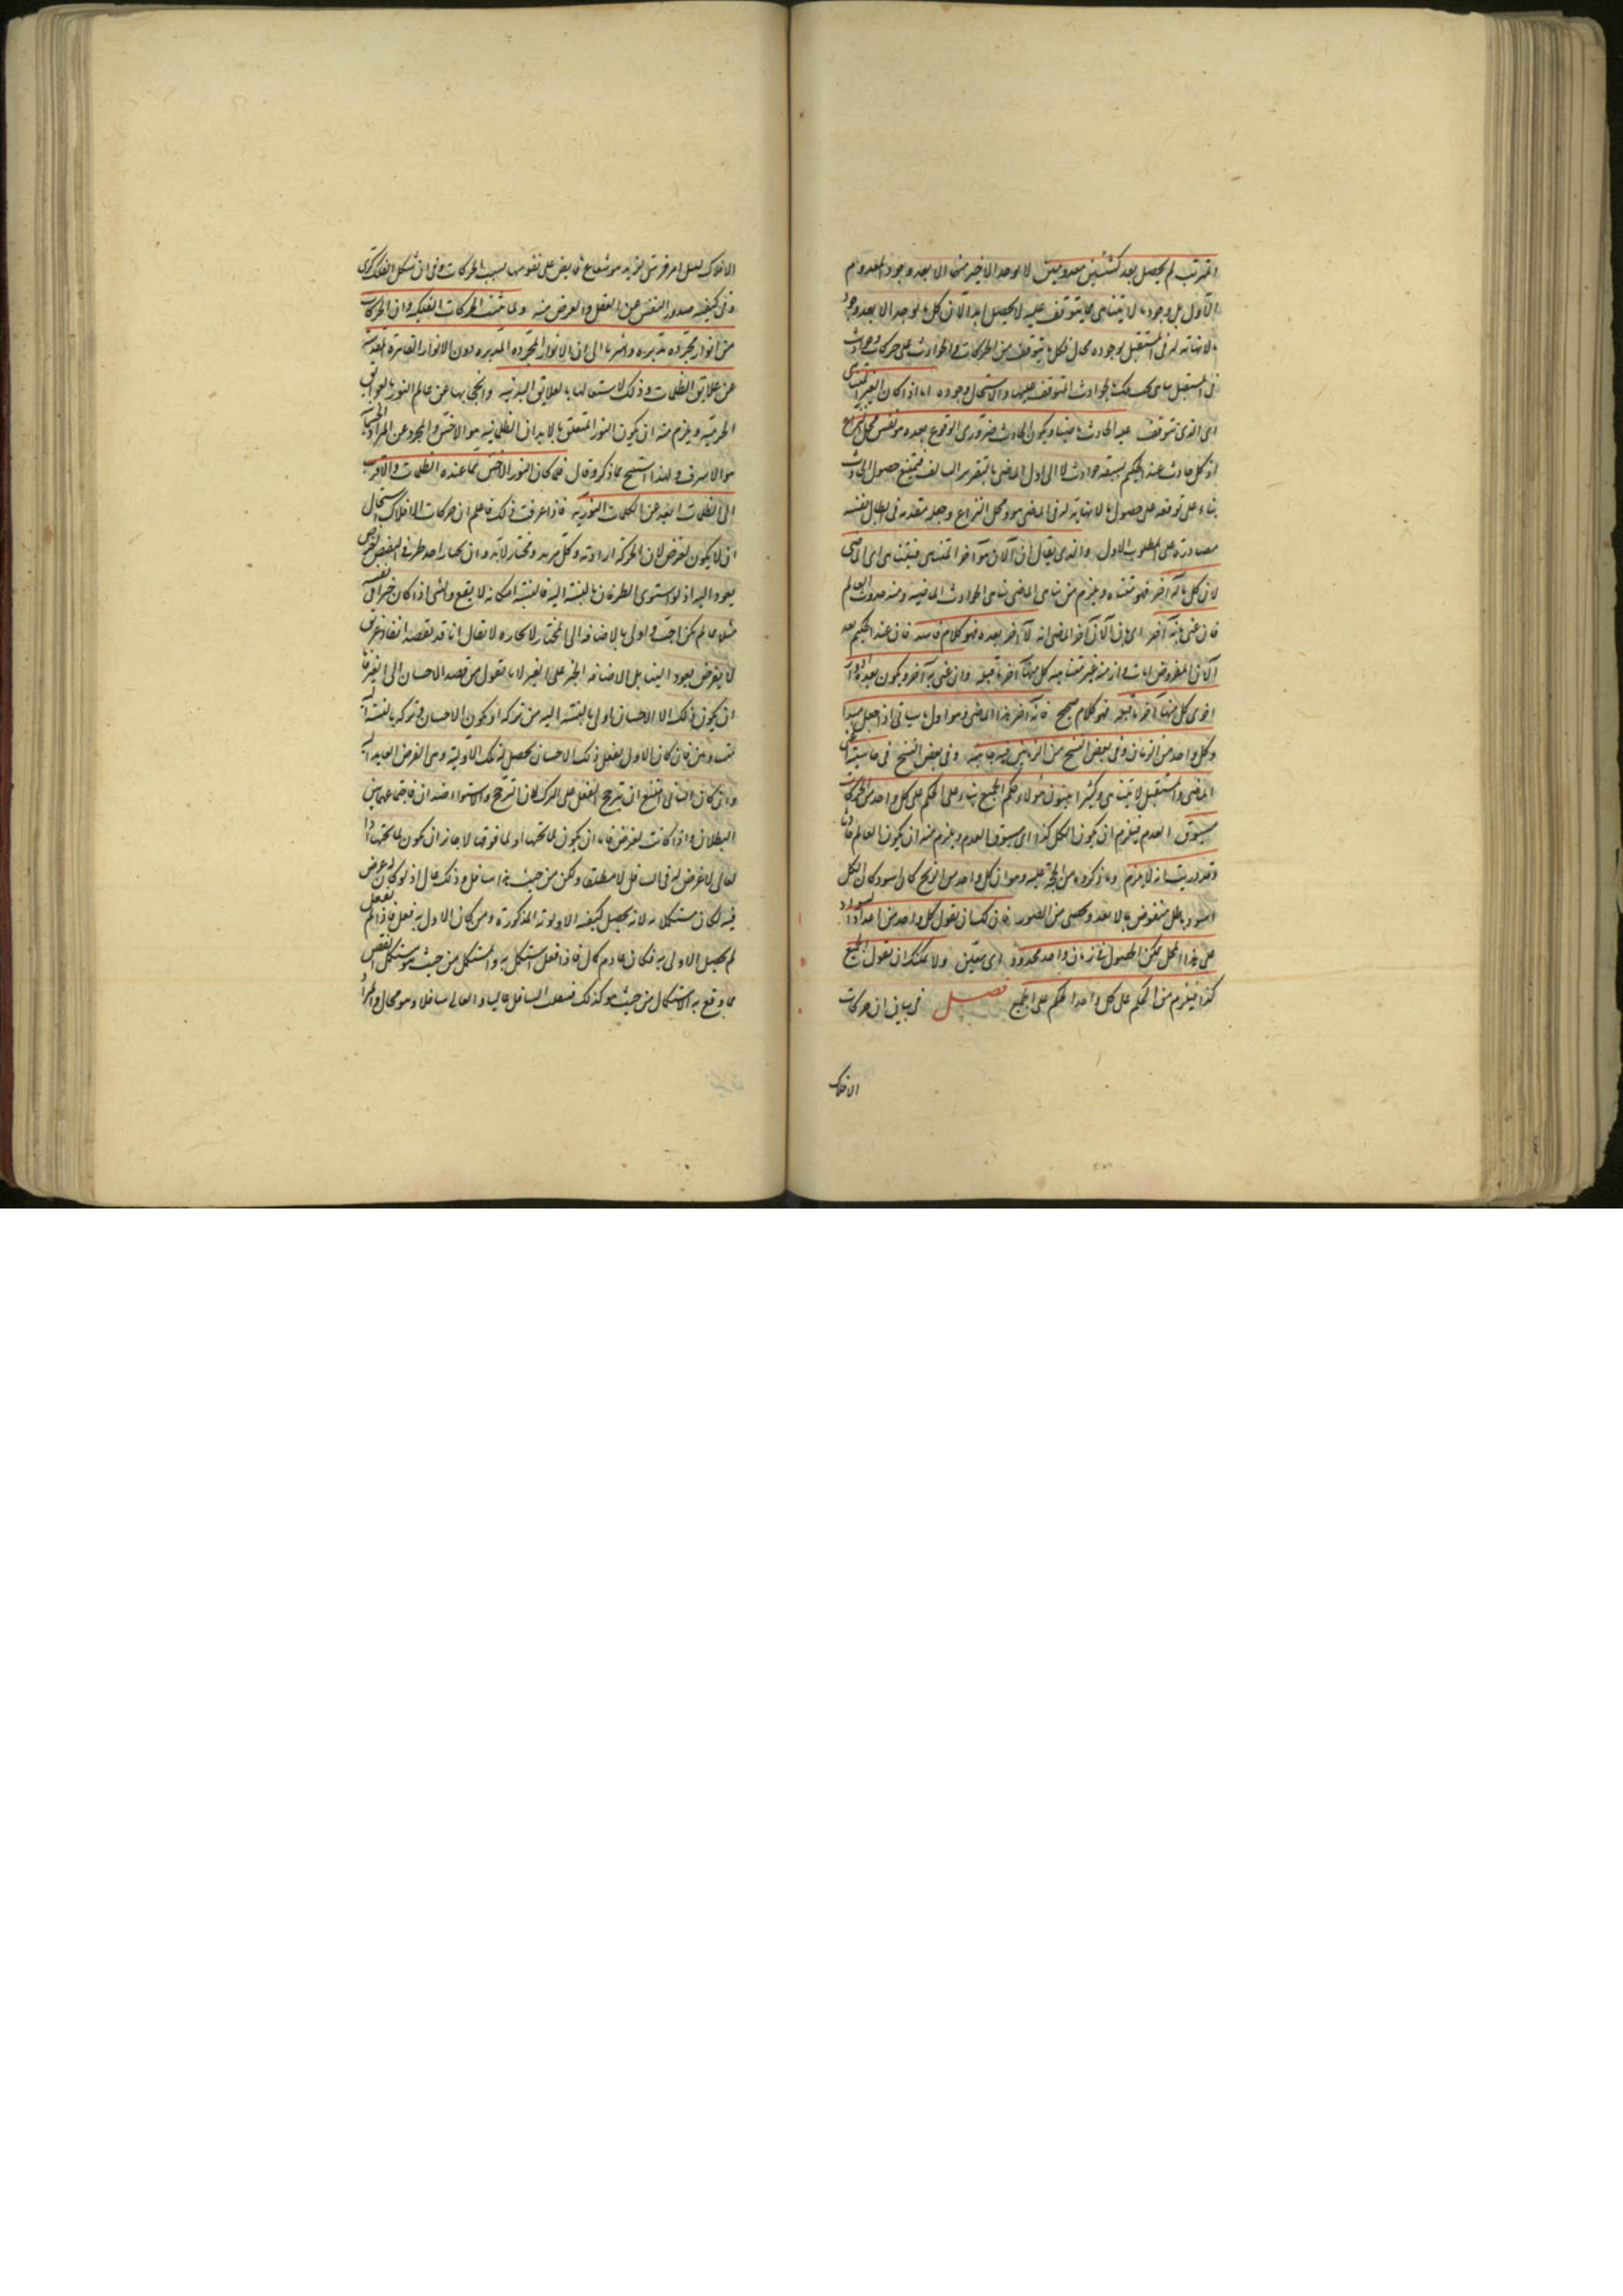 المترتب لم يحصل بعد كشيئين معدومين لا يوجد الاخير منهما الا بعد وجود المعدوم
الاول بل وجود ما لا يتناهى مما يتوقف عليه لا يحصل ابدا لان كل ما لا يوجد الا بعد وجود
ما لا نهاية له في المستقبل وجوده محال فكل ما يتوقف من الحركات والحوادث على حركات وحوادث
في المستقبل تلك الحوادث المتوقف عليها والا استحال وجوده اما اذا كان الغير المتناهي
اى الذى يتوقف عليه الحادث ماضيا ويكون الحادث ضرورى الوقوع بعده هو نفس محل النزاع
اذ كل حادث عند الحكيم يسبقه حوادث لا الى اول الماضى بالتقرير السالف فيمتنع حصول الحادث
بناء على توقفه على حصول ما لا نهاية له في الماضى هو محل النزاع وجعله مقدمة في ابطال نفسه
مصادرة على المطلوب الاول والذى يقال ان الآن هو آخر المتناهي فيتناهى اى الماضى
لان كل ما له آخر فهو متناه ويلزم من تناهى الماضى تناهى الحوادث الماضية ومنه حدوث العالم
فان عنى بانه آخر اى بان الآن آخر الماضى انه لا آخر بعده فهو كلام فاسد فان عند الحكيم بعد
الآن المفروض آنات وازمنة غير متناهية كل منها آخر ما قبله وان عنى به آخر ويكون بعده ادوار
اخرى كل منها آخر ما قبله فهو كلام صحيح فانه آخر هذا الماضى وهو اول ما سياتى اذ جعل مبدا
وكل واحد من الزمان وفي بعض النسخ من الزمانين وفيه جانبيه وفي بعض النسخ في حاشيتيه اعنى
الماضى والمستقبل لا يتناهى وكثيرا ما يبنون هؤلاء حكم الجميع بناء على الحكم على كل واحد من الحركات
مسبوق العدم فيلزم ان يكون الكل كذا اى مسبوقا بالعدم ويلزم منه ان يكون العالم حادثا
وقد دريت انه لا يلزم وما ذكروه من الحجة عليه وهو ان كل واحد من الزنج كان اسود كان الكل
اسود باطل منقوض بما لا يعد ولا يحصى من الصور فان لك ان تقول كل واحد من اعداد السواد
على هذا المحل ممكن الحصول في زمان واحد محدود اى معين ولا يمكنك ان تقول الجميع
كذا فيلزم من الحكم على كل واحد الحكم على الجميع فصل في بيان ان حركات
الافلاك
الافلاك لنيل امر قدسى لذيذ هو شعاع فائض على نفوسها بسبب الحركات وفي ان شكل الفلك كرى
وفي كيفية صدور النفس عن العقل والغرض منه ولما ثبت الحركات الفلكية وان الحركات
من انوار مجردة مدبرة واشرنا الى ان الانوار المجردة المدبرة دون الانوار القاهرة المقدسة
عن علايق الظلمات وذلك لاستعمالها بالعلايق البدنية وانحجابها عن عالم النور بالعوايق
الجرمية ويلزم منه ان يكون النور المتعلق بالابدان الظلمانية هو الاخس والمجرد عن المواد الجسمانية
هو الاشرف ولهذا استنتج مما ذكره وقال فلما كان النور الاخس مما عنده الظلمات والاقرب
الى الظلمات ابعد عن الكمالات النورية فاذا عرفت ذلك فاعلم ان حركات الافلاك استحال
ان لا يكون لغرض لان الحركة ارادته وكل مريد ومختار لابد وان يختار احد طرفي النقيض لغرض
يعود اليه اذ لو استوى الطرفان بالنسبة اليه فالنسبة امكانية لا يقع والشئ اذا كان خيرا في نفسه
مثلا ما لم يكن احب واولى بالاضافة الى المختار لا يختاره لا يقال انا قد نقصد انقاذ غريق
لا لغرض يعود الينا بل الاضافة الخير على الغير لانا نقول من قصد الاحسان الى الغير فاما
ان يكون ذلك الاحسان اولى بالنسبة اليه من تركه او يكون الاحسان وتركه بالنسبة اليه
متساويين فان كان الاول بفعل ذلك الاحسان يحصل له تلك الاولوية وهى الغرض العايد اليه
وان كان الثانى امتنع ان يترجح الفعل على الترك لان الترجح والاستواء ضدان فاجتماعهما بين
البطلان واذا كانت لغرض فاما ان يكون لما تحتها او لما فوقها لا جائز ان يكون لما تحتها اذ
العالى لا غرض له في السافل لا مطلقا ولكن من حيث هو سافل وذلك محال اذ لو كان له غرض
فيه لكان مستكملا به لانه يحصل كيفية الاولوية المذكورة ومن كان الاولى به فعل فاذا لم يفعل
لم يحصل الاولى به فكان عادم كمال فاذا فعل استكمل به والمستكمل من حيث هو مستكمل انقص
مما وقع به الاستكمال من حيث هو كذلك فينقلب السافل عاليا والعالى سافلا وهو محال والمراد